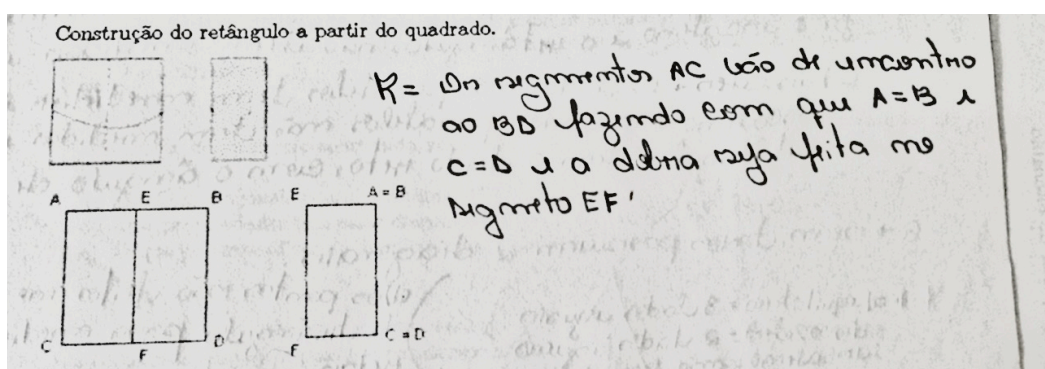 Construção do retângulo a partir do quadrado.
R= Os segmentos AC vão de encontro
ao BD fazendo com que A=B e
C=D e a dobra seja feita no
segmeto EF
A E B
E A = B
C F D
F C = D